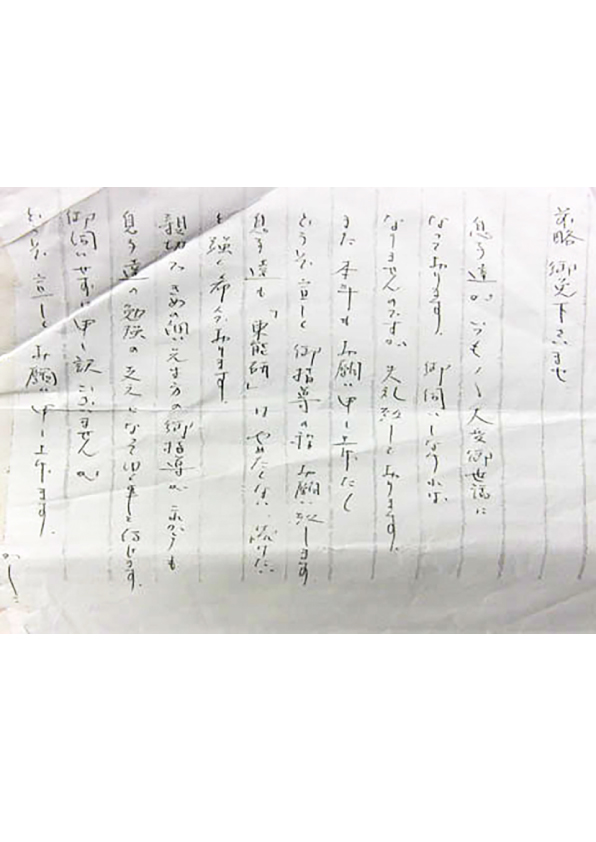 前略 御免下さいませ
息子達が いつも〱大変御世話に
なっております。 御伺いしなければ
なりませんのですが 失礼致しております。
また本年もお願い申し上げたく
どうぞ、宜しく御指導の程お願い致します
息子達も「東能研」はやめたくない、続けた
と強く希んでおります。
親切な きめの細い 先生方の御指導が 何よりも
息子達の勉強の支えになって
御伺いせずに申し訳ございませんが
どうぞ、宜しくお願い申し上げます。
かしこ